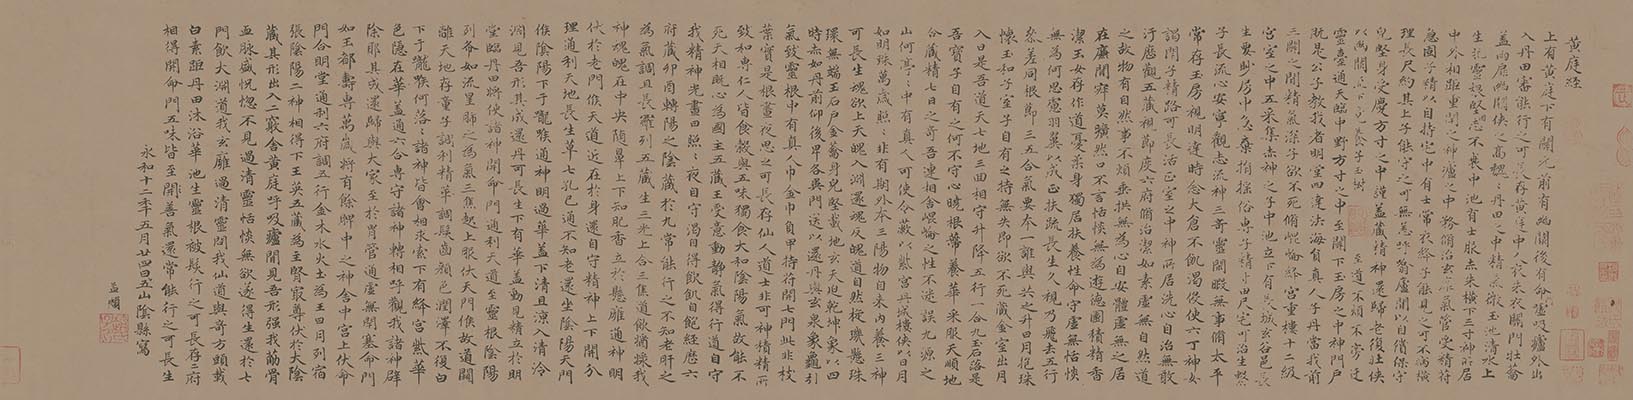 黃庭經
上有黃庭下有關元前有幽闕後有命門噓吸廬外出
入丹田審能行之可長存黃庭中人衣朱衣關門壯籥
蓋兩扉幽闕俠之高魏魏丹田之中精氣微玉池清水上
生肥靈根堅志不衰中池有士服赤朱橫下三寸神所居
中外相距重閉之神廬之中務脩治玄㕕氣管受精符
急固子精以自持宅中有士常衣絳子能見之可不病橫
理長尺約其上子能守之可無恙呼翕廬間以自償保守
兒堅身受慶方寸之中謹蓋藏精神還歸老復壯俠
以幽闕流下竟養子玉樹 至道不煩不旁迕
靈臺通天臨中野方寸之中至關下玉房之中神門戶
既是公子教我者明堂四達法海員真人子丹當我前
三關之間精氣深子欲不死脩崑崙絳宮重樓十二級
宮室之中五采集赤神之子中池立下有長城玄谷邑長
生要眇房中急棄捐搖俗專子精寸田尺宅可治生繫
子長流心安寧觀志流神三奇靈閒暇無事脩太平
常存玉房視明達時念大倉不飢渴役使六丁神女
謁閉子精路可長活正室之中神所居洗心自治無敢
汙歷觀五藏視節度六府脩治潔如素虛無自然道
之故物有自然事不煩垂拱無為心自安體虛無之居
在廉間寂莫曠然口不言恬惔無為遊德園積精香
潔玉女存作道憂柔身獨居扶養性命守虛無恬惔
無為何思慮羽翼以成正扶疏長生久視乃飛去五行
參差同根節三五合氣要本一誰與共之升日月抱珠
懷玉和子室子自有之持無失即欲不死藏金室出月
入日是吾道天七地三回相守升降五行一合九玉石落落是
吾寶子自有之何不守心曉根蒂養華采服天順地
合藏精七日之奇吾連相舍崑崙之性不迷誤九源之
山何亭亭中有真人可使令蔽以紫宮丹城樓俠以日月
如明珠萬歲照照非有期外本三陽物自來內養三神
可長生魂欲上天魄入淵還魂反魄道自然旋璣懸珠
環無端玉石戶金籥身兒堅載地玄天迫乾坤象以四
時赤如丹前仰後卑各異門送以還丹與玄泉象龜引
氣致靈根中有真人巾金巾負甲持符開七門此非枝
葉實是根晝夜思之可長存仙人道士非可神積精所
致和專仁人皆食穀與五味獨食大和陰陽氣故能不
死天相既心為國主五藏王受意動靜氣得行道自守
我精神光晝日照照夜自守渴自得飲飢自飽經歷六
府藏卯酉轉陽之陰藏於九常能行之不知老肝之
為氣調且長羅列五藏生三光上合三焦道飲醬漿我
神魂魄在中央隨鼻上下知肥香立於懸雍通神明
伏於老門候天道近在於身還自守精神上下開分
理通利天地長生草七孔已通不知老還坐陰陽天門
候陰陽下于嚨喉通神明過華蓋下清且涼入清泠
淵見吾形其成還丹可長生下有華蓋動見精立於明
堂臨丹田將使諸神開命門通利天道至靈根陰陽
列布如流星肺之為氣三焦起上服伏天門候故道闚
離天地存童子調利精華調髮齒顏色潤澤不復白
下于嚨喉何落落諸神皆會相求索下有絳宮紫華
色隱在華蓋通六合專守諸神轉相呼觀我諸神辟
除耶其成還歸與大家至於胃管通虛無閉塞命門
如玉都壽專萬歲將有餘脾中之神舍中宮上伏命
門合明堂通利六府調五行金木水火土為王日月列宿
張陰陽二神相得下玉英五藏為主腎最尊伏於大陰
藏其形出入二竅舍黃庭呼吸廬間見吾形强我筋骨
血脈盛怳惚不見過清靈恬惔無欲遂得生還於七
門飲大淵道我玄廱過清靈問我仙道與奇方頭載
白素距丹田沐浴華池生靈根被髮行之可長存二府
相得開命門五味皆至開善氣還常能行之可長生
永和十二年五月廿四日五山陰縣寫
孟頫